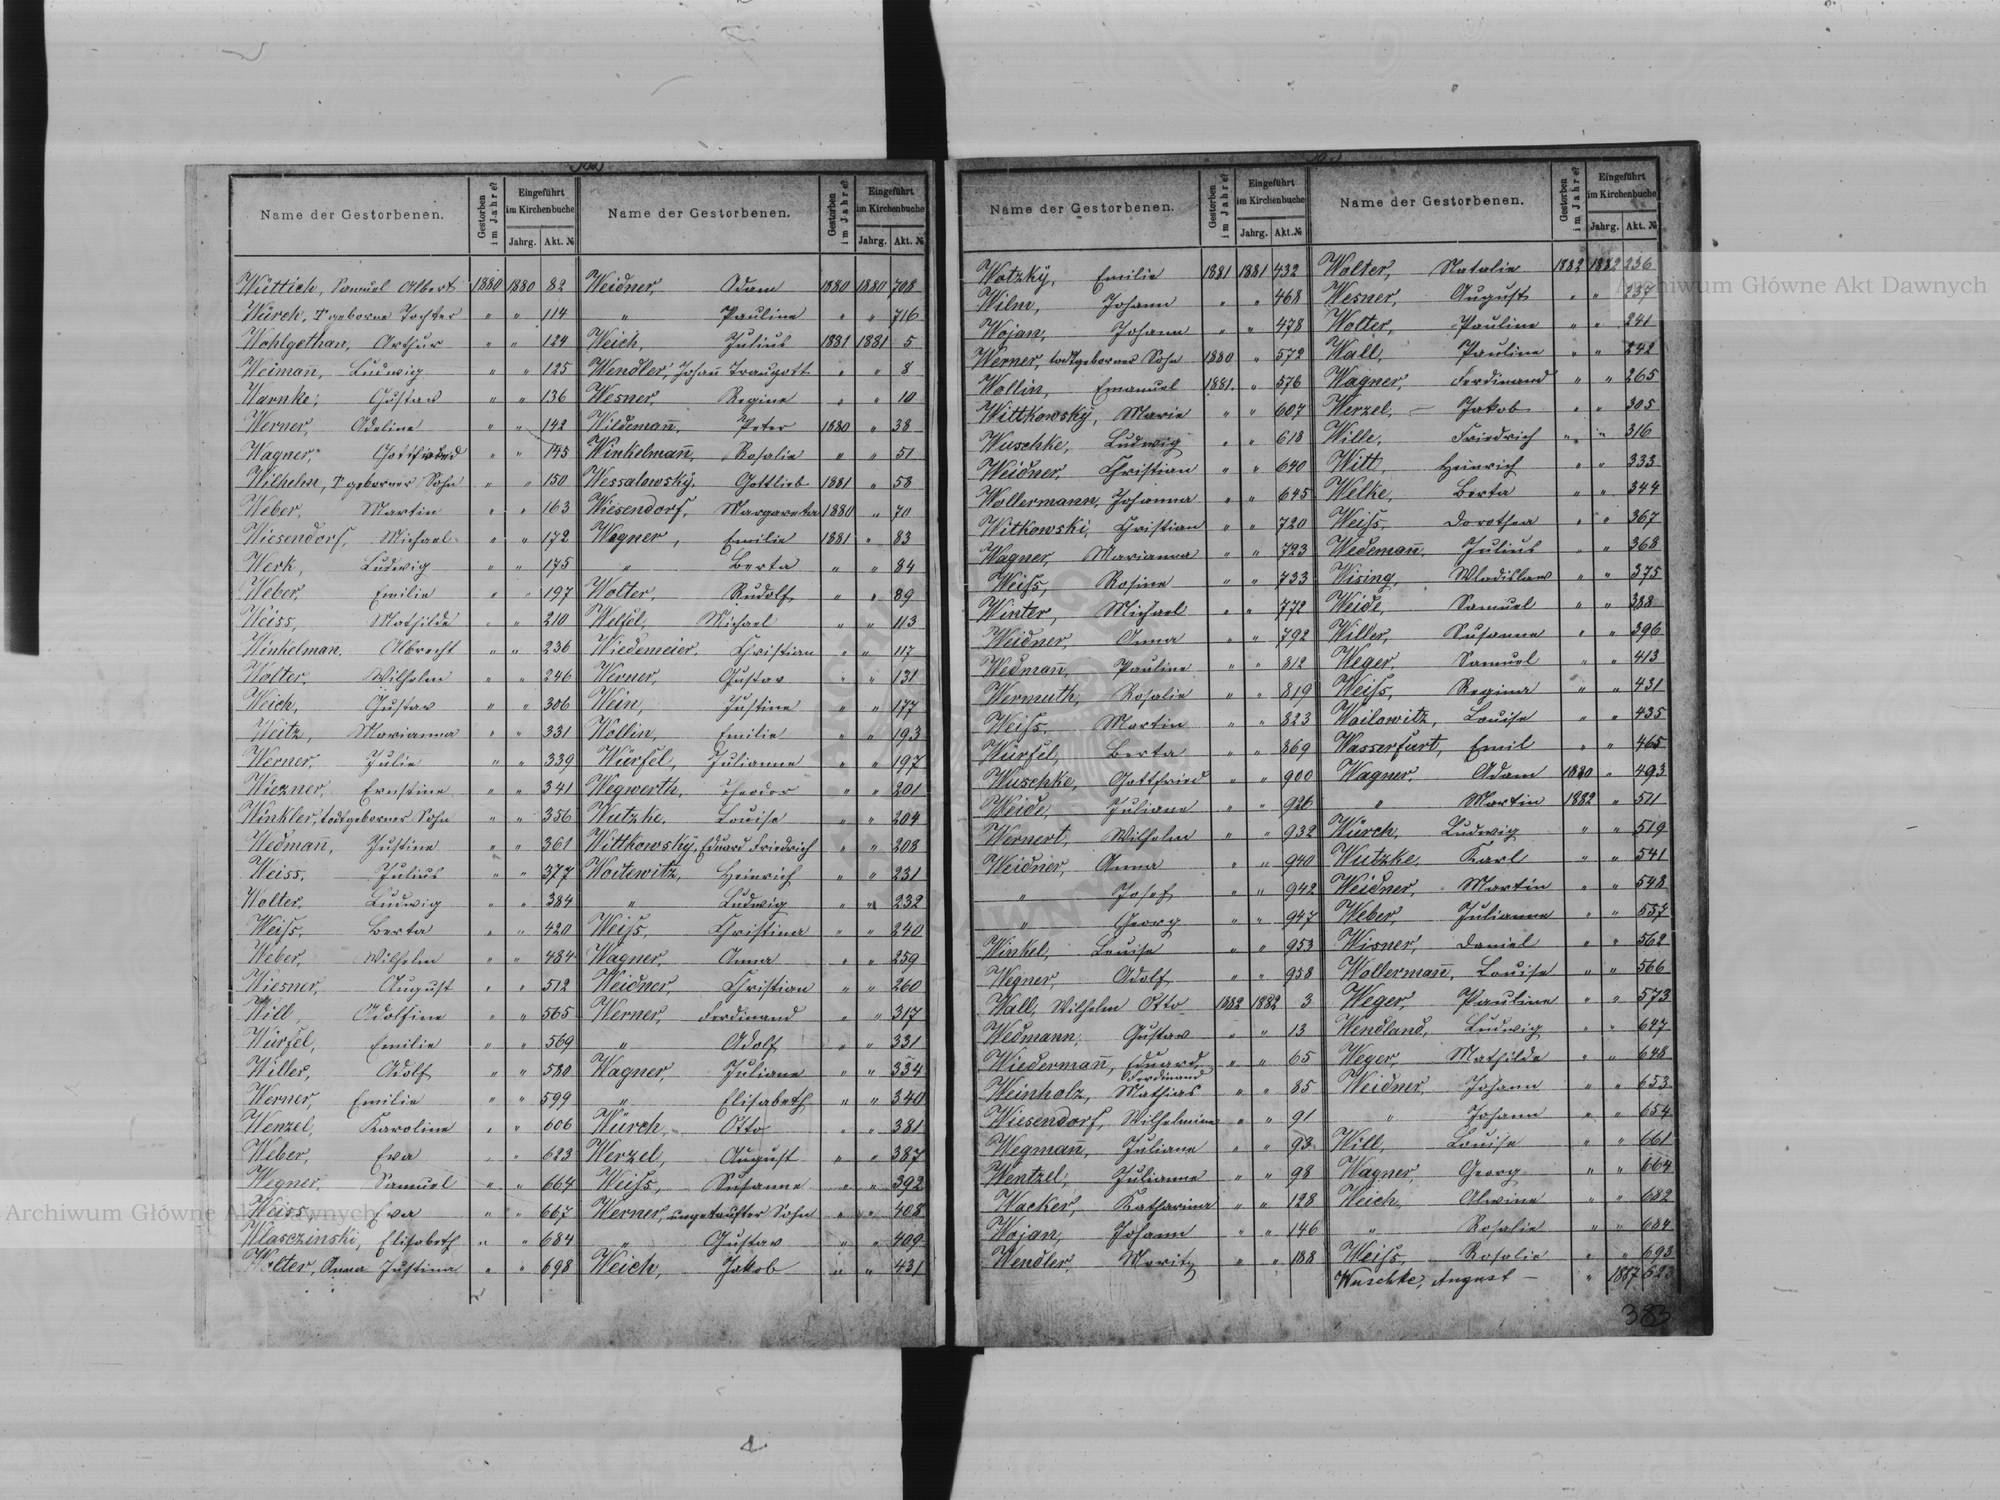 Name der Gestorbenen. Gestorben im Jahre? Eingeführt im Kirchenbuche Jahrg. Akt. №
Wüttich, Samuel Albert 1880 1880 82
Würch, T geborne Tochter " " 114
Wohlgethan, Arthur " " 124
Weiman̄, Ludwig " " 125
Warnke, Gustav " " 136
Werner, Adeline " " 142
Wagner, Gottfried " " 145
Wilhelm, T geborner Sohn " " 150
Weber, Martin " " 163
Wiesendorf, Michael " " 172
Werk, Ludwig " " 175
Weber, Emilie " " 197
Weiss, Mathilde " " 210
Winkelman, Albrecht " " 236
Wolter, Wilhelm " " 246
Weich, Gustav " " 306
Weitz, Marianna " " 331
Werner, Julie " " 339
Wiezner, Ernstine " " 341
Winkler, todtgeborner Sohn " " 356
Wedman̄, Justine " " 361
Weiss, Julius " " 377
Wolter, Ludwig " " 384
Weiſs, Berta " " 420
Weber, Wilhelm " " 484
Wiesner, August " " 512
Will, Adolfine " " 565
Würfel, Emilie " " 569
Willer, Adolf " " 580
Werner, Emilie " " 599
Wenzel, Karoline " " 606
Weber, Eva " " 623
Wegner, Samuel " " 664
Weiss, Eva " " 667
Wlasczinski, Elisabeth " " 684
Wolter, Anna Justina " " 698
Name der Gestorbenen. Gestorben im Jahre? Eingeführt im Kirchenbuche Jahrg. Akt. №
Weidner, Adam 1880 1880 708
" Pauline " " 716
Weich, Julius 1881 1881 5
Wendler, Johan̄ Traugott " " 8
Wesner, Regine " " 10
Wildeman̄, Peter 1880 " 38
Winkelman̄, Rosalie " " 51
Wessalowsky, Gottlieb 1881 " 58
Wiesendorf, Margareta 1880 " 70
Wagner, Emilie 1881 " 83
" Berta " " 84
Wolter, Rudolf " " 89
Welsel, Michael " " 113
Wiedemeier, Christian " " 117
Werner, Gustav " " 131
Wein, Justine " " 177
Wollin, Emilie " " 193
Würfel, Julianne " " 197
Wegwerth, Theodor " " 201
Wutzke, Louise " " 204
Wittkowsky, Eduard Friedrich " " 208
Woitewitz, Heinrich " " 231
" Ludwig " " 232
Weiſs, Christina " " 240
Wagner, Anna " " 259
Weidner, Christian " " 260
Werner, Ferdinand " " 317
" Adolf " " 331
Wagner, Juliane " " 334
" Elisabeth " " 340
Würch, Otto " " 381
Werzel, August " " 387
Weiſs, Susanne " " 392
Werner, ungetaufter Sohn " " 408
" Gustav " " 409
Weich, Jakob " " 431
Name der Gestorbenen. Gestorben im Jahre? Eingeführt im Kirchenbuche Jahrg. Akt. №
Watzky, Emilie 1881 1881 432
Wilm, Johann " " 468
Wojan, Johann " " 478
Werner, todtgeborner Sohn 1880 " 572
Wollin, Emanuel 1881 " 576
Wittkowsky, Marie " " 607
Wuschke, Ludwig " " 618
Weidner, Christian " " 640
Wollermann, Johanna " " 645
Witkowski, Christian " " 720
Wagner, Marianna " " 723
Weiſs, Rosine " " 733
Winter, Michael " " 772
Weidner, Anna " " 792
Wedman̄, Pauline " " 812
Wermuth, Rosalie " " 819
Weiſs, Martin " " 823
Würfel, Berta " " 869
Wuschke, Gottfried " " 900
Weide, Juliane " " 926
Wernert, Wilhelm " " 932
Weidner, Anna " " 940
" Josef " " 942
" Georg " " 947
Winkel, Louise " " 953
Wegner, Adolf " " 958
Wall, Wilhelm Otto 1882 1882 3
Wedmann, Gustav " " 13
Wiederman̄, Eduard Ferdinand " " 65
Weinholz, Mathias " " 85
Wiesendorf, Wilhelmine " " 91
Wegman, Juliane " " 93
Wentzel, Julianne " " 98
Wacker, Katharina " " 128
Wojan, Johann " " 146
Wendler, Moritz " " 188
Name der Gestorbenen. Gestorben im Jahre? Eingeführt im Kirchenbuche Jahrg. Akt. №
Wolter, Natalie 1882 1882 236
Wesner, August " " 237
Wolter, Pauline " " 241
Wall, Pauline " " 242
Wagner, Ferdinand " " 265
Werzel, Jakob " " 305
Wille, Friedrich " " 316
Witt, Heinrich " " 333
Welke, Berta " " 344
Weiſs, Dorothea " " 367
Wedeman̄, Julius " " 368
Wising, Wladislaw " " 375
Weide, Samuel " " 388
Willer, Susanne " " 396
Weger, Samuel " " 413
Weiſs, Regina " " 431
Wailowitz, Louise " " 435
Wasserfurt, Emil " " 465
Wagner, Adam 1880 " 493
" Martin 1882 " 511
Würch, Ludwig " " 519
Wutzke, Karl " " 541
Weidner, Martin " " 548
Weber, Julianne " " 557
Wisner, Daniel " " 562
Wollerman̄, Louise " " 566
Weger, Pauline " " 573
Wendland, Ludwig " " 647
Weger, Mathilde " " 648
Weidner, Johann " " 653
" Johann " " 654
Will, Louise " " 661
Wagner, Georg " " 664
Weich, Alwine " " 682
" Rosalie " " 684
Weiſs, Rosalie " " 693
Wuschke, August " 1887 523
383
Archiwum Główne Akt Dawnych
Archiwum Główne Akt Dawnych